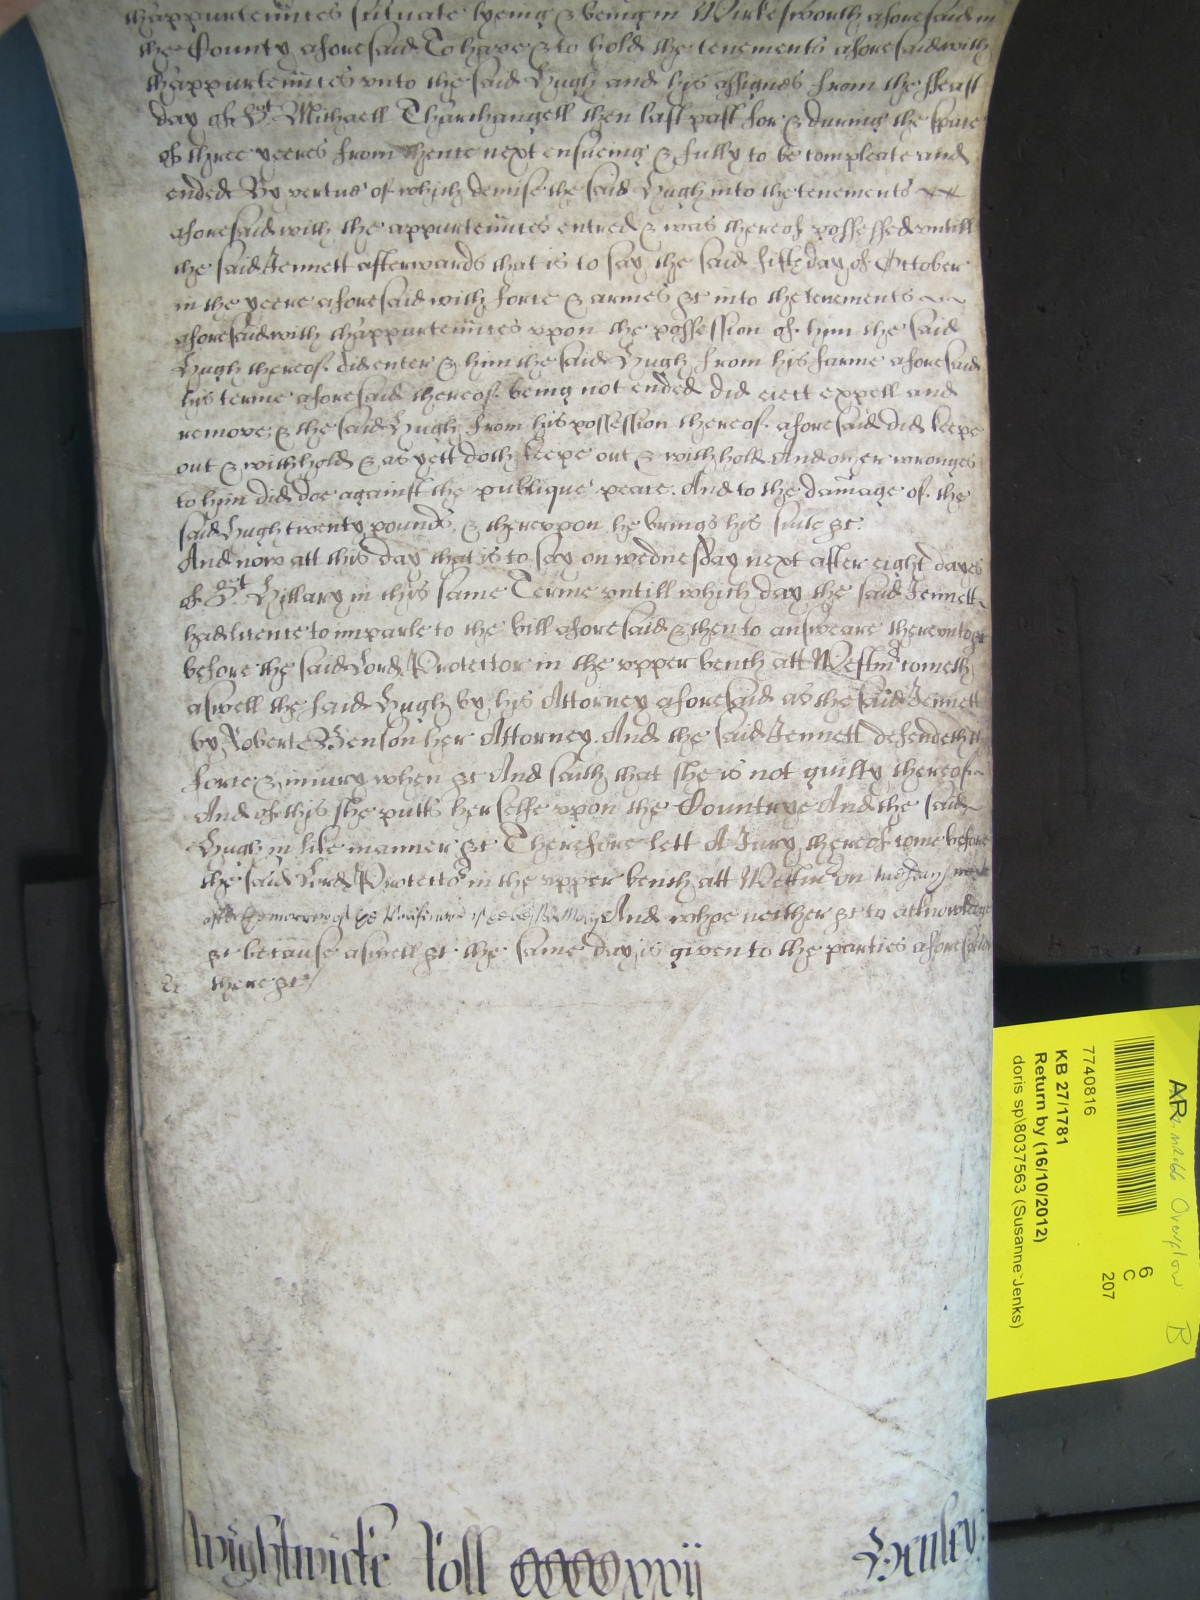 thappurten̄ntes scituate lyeing & being in Wirkesworth aforesaid in
the County aforesaid To have & to hold the tenements aforesaid with
thappurten̄ntes vnto the said Hugh and his assignes from the ffeast
day of St Michaell Tharchangell then last past for & during the space
of three yeeres from thence next ensueing & fully to be compleate and
ended By vertue of which demise the said Hugh into the tenements
aforesaid with the appurten̄ntes entred & was thereof possessed vntill
the said Jennett afterwards that is to say the said fifth day of October
in the yeere aforesaid with force & armes &c into the tenements
aforesaid with thappurten̄ntes vpon the possession of him the said
Hugh thereof did enter & him the said Hugh from his farme aforesaid
his terme aforesaid thereof being not ended did eiect expell and
remove & the said Hugh from his possession thereof aforesaid did keepe
out & withhold & as yett doth keepe out & withhold And other wronges
to him did doe against the publique peace. And to the dam̄age of the
said Hugh twenty pounds & therevpon he brings his suite &c.
And now att this day that is to say on wednesday next after eight dayes
of St Hillary in this same Terme vntill which day the said Jennett
had licence to imparle to the bill aforesaid & then to answeare therevnto &c
before the said Lord Protector in the vpper bench att Westmr cometh
aswell the said Hugh by his Attorney aforesaid as the said Jennett
by Robert Benson her Attorney. And the said Jennett defendeth the
force & iniury when &c And saith that she is not guilty thereof
And of this she putts her selfe vpon the Countrye And the said
Hugh in like manner &c Therefore lett A Jury thereof come before
the said Lord Protector in the vpper bench att Westmr on tuesday next
after the morrow of the Purificac̄on of the blessed Mary And whoe neither &c to acknowledge
&c because aswell &c the same day is given to the parties aforesaid
there &c
Wightwicke Roll CCCCxxvij Henley
AR
Overflow B
7740816
KB 27/1781
Return by (16/10/2012)
doris sp\8037563 (Susanne Jenks)
6
C
207